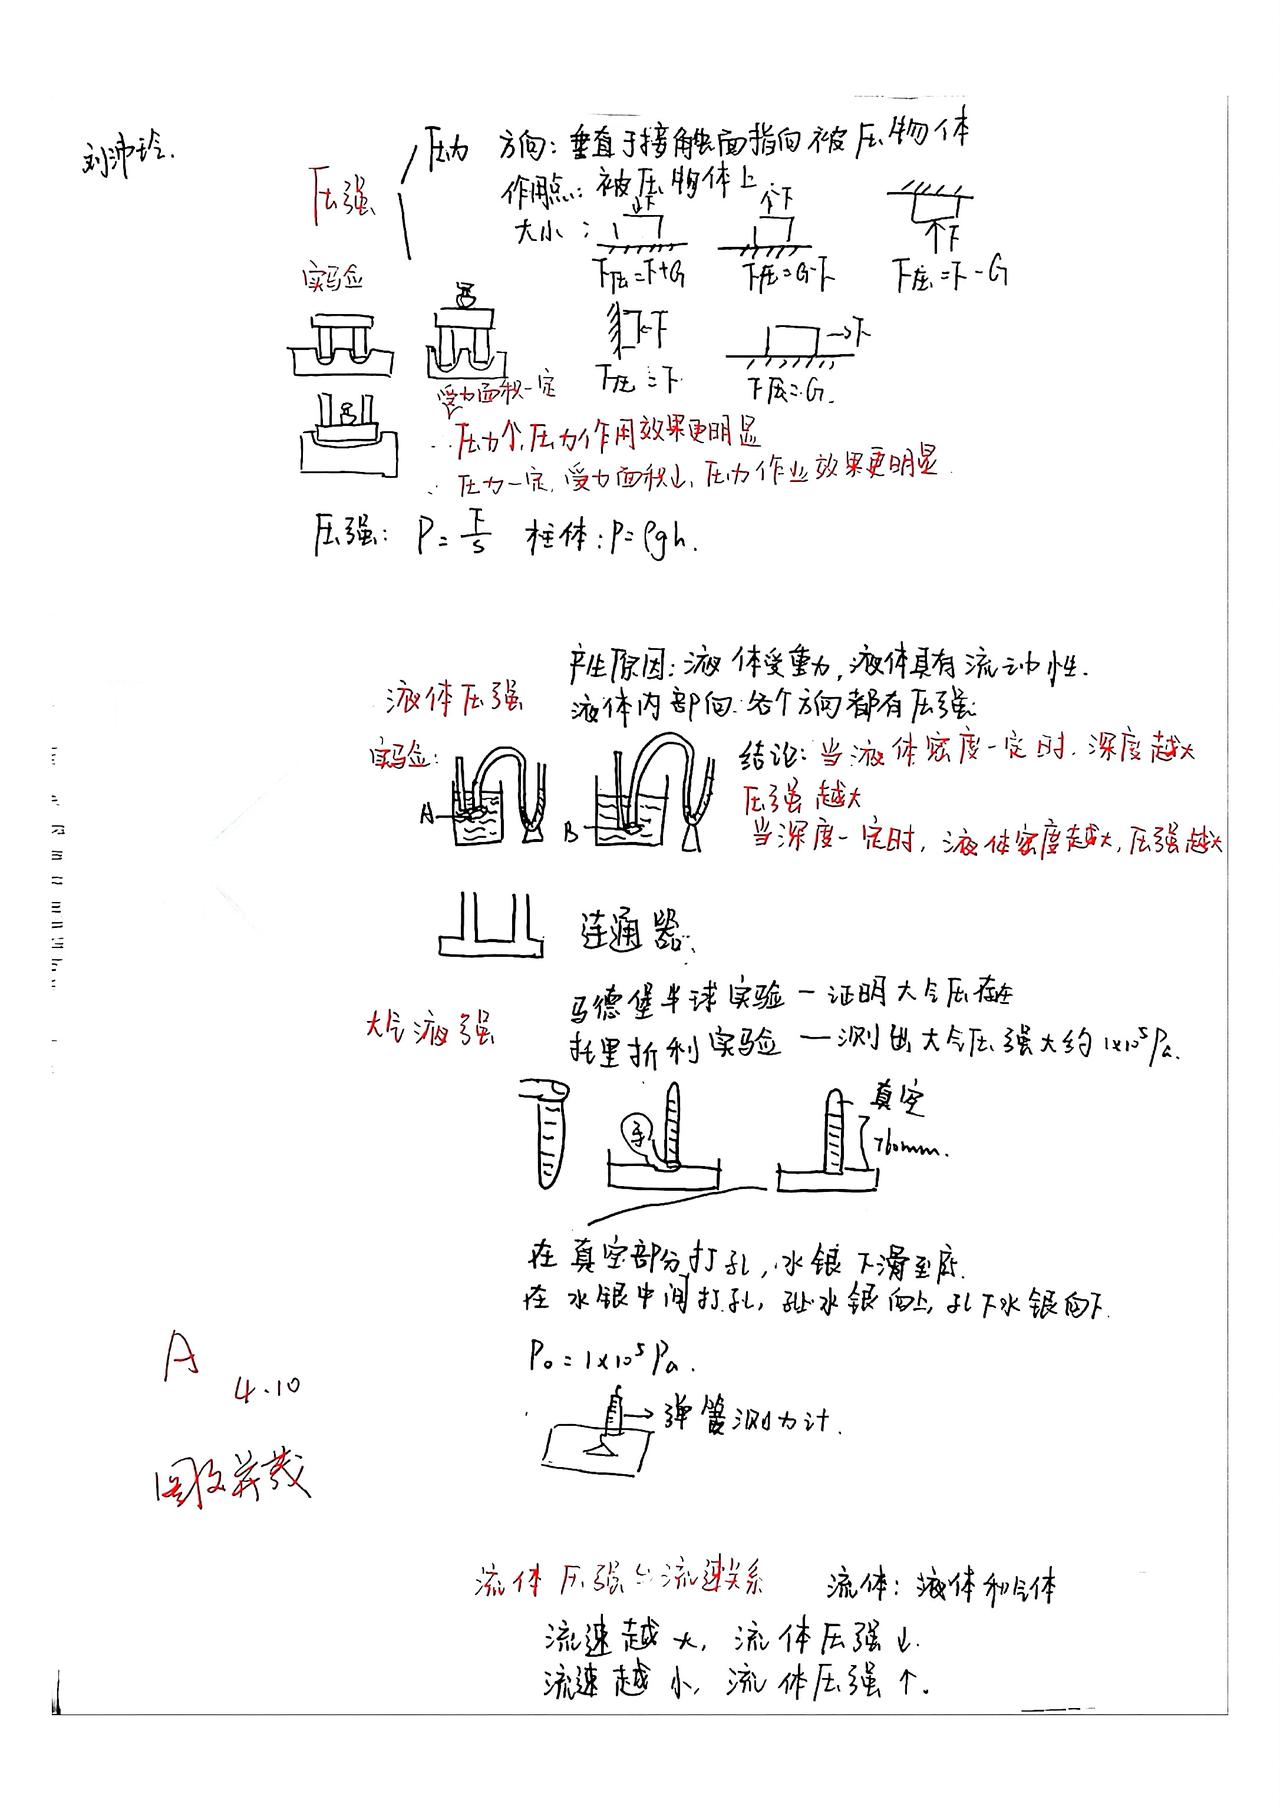 刘沛玲.
压强
压力 方向：垂直于接触面指向被压物体
作用点：被压物体上
大小：
↓F ↑F ↑F
F压=F+G F压=G-F F压=F-G
实验
←F →F
F压=F. F压=G.
受力面积一定
∴压力个,压力作用效果更明显
∴压力一定,受力面积↓,压力作业效果更明显.
压强：P=F/S 柱体：P=ρgh.
液体压强
产生原因：液体受重力,液体具有流动性.
液体内部向各个方向都有压强.
实验： A B
结论：当液体密度一定时.深度越大
压强越大
当深度一定时,液体密度越大,压强越大
连通器.
大气液强
马德堡半球实验一证明大气压存在
托里折利实验 — 测出大气压强大约1x10⁵Pa.
手
真空
760mm.
在真空部分打孔,水银下滑至底.
在水银中间打孔,孔上水银向上,孔下水银向下.
P₀=1x10⁵Pa.
→弹簧测力计.
A
4.10
图文并茂
流体压强与流速关系 流体：液体和气体
流速越大,流体压强↓.
流速越小,流体压强↑.